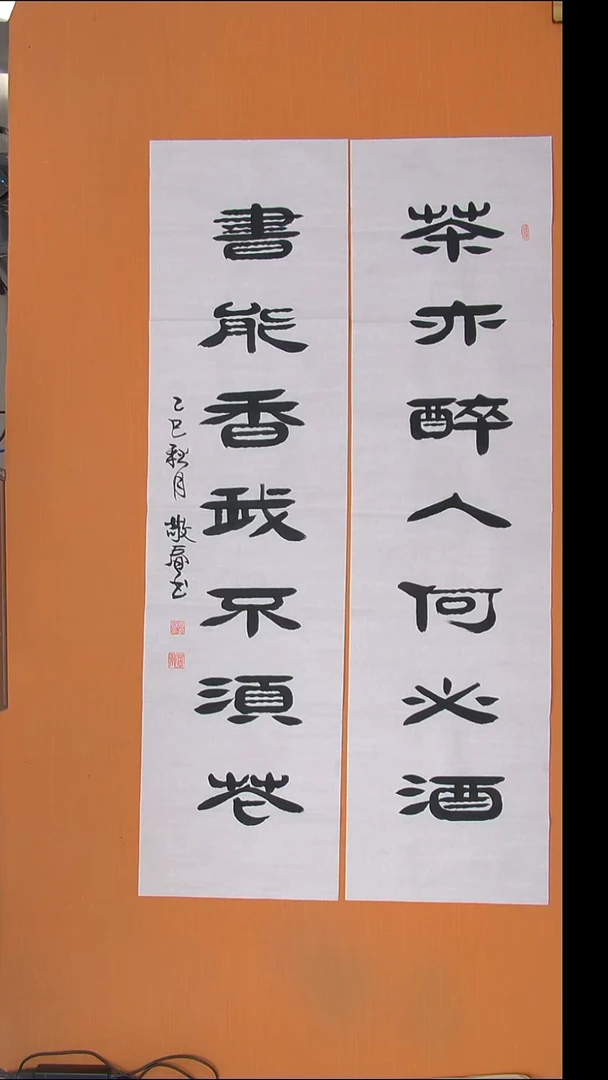 茶亦醉人何必酒
書能香我不須花
乙巳秋月 敬春书